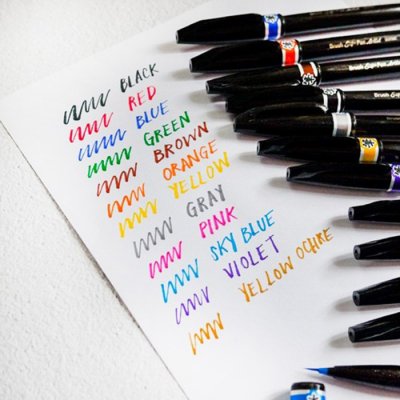 BLACK
RED
BLUE
GREEN
BROWN
ORANGE
YELLOW
GRAY
PINK
SKY BLUE
VIOLET
YELLOW OCHRE
Brush Sign Pen Artist
Brush Sign Pen Artist
Brush Sign Pen
Brush